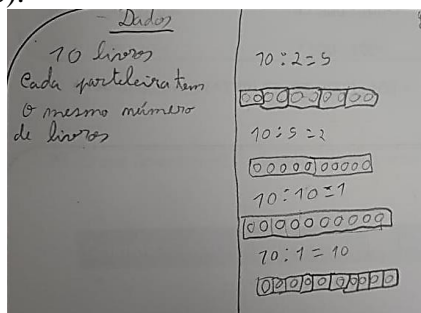 - Dados
10 livros
Cada parteleira tem
o mesmo número
de livros
10:2=5
10:5=2
10:10=1
10:1=10